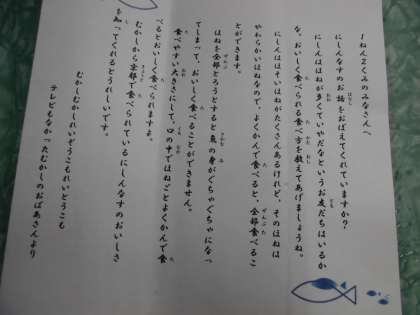 1ねん2くみのみなさんへ
にしんなすのお話をおぼえてくれていますか?
にしんはほねが多くていやだなというお友だちはいるか
な。おいしく食べられる食べ方を教えてあげましょうね。
にしんはほそいほねがたくさんあるけれど、そのほねは
やわらかいほねなので、よくかんで食べると、全部食べるこ
とができます。
ほねを全部とろうとすると魚の身がぐちゃぐちゃになっ
てしまって、おいしく食べることができません。
食べやすい大きさにして、口の中でほねごとよくかんで食
べるとおいしく食べられますよ。
むかしから京都で食べられているにしんなすのおいしさ
を知ってくれるとうれしいです。
むかしむかしれいぞうこもれいとうこも
テレビもなかったむかしのおばあさんより